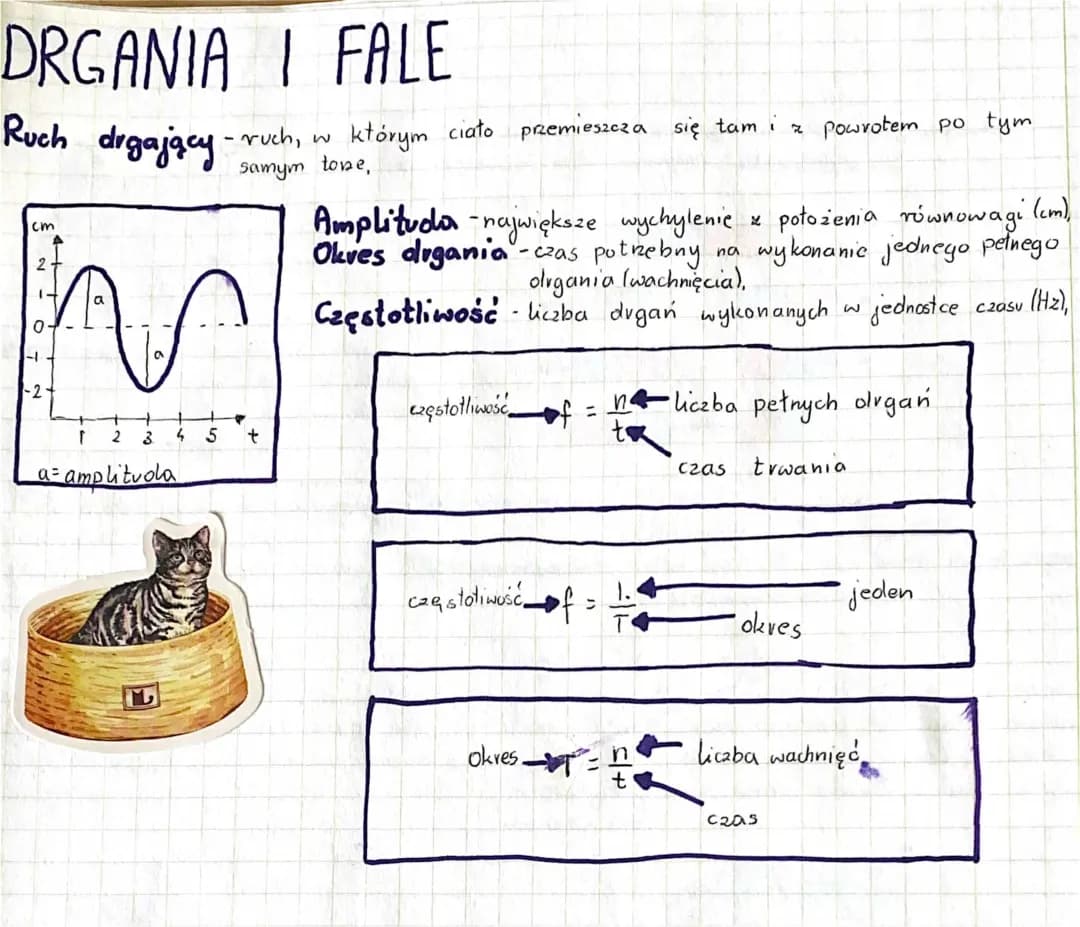 DRGANIA I FALE
Ruch drgający - ruch, w którym ciało przemieszcza się tam i z powrotem po tym
samym torze,
cm
2
1
0
-1
-2
a
a
1 2 3 4 5 t
a= amplituda
Amplituda - największe wychylenie z położenia równowagi (cm),
Okres drgania - czas potrzebny na wykonanie jednego pełnego
drgania (wachnięcia),
Częstotliwość - liczba drgań wykonanych w jednostce czasu (Hz),
częstotliwość f = n liczba pełnych drgań
t
czas trwania
częstotliwość f = 1. jeden
T okres
Okres T = n liczba wachnięć
t
czas